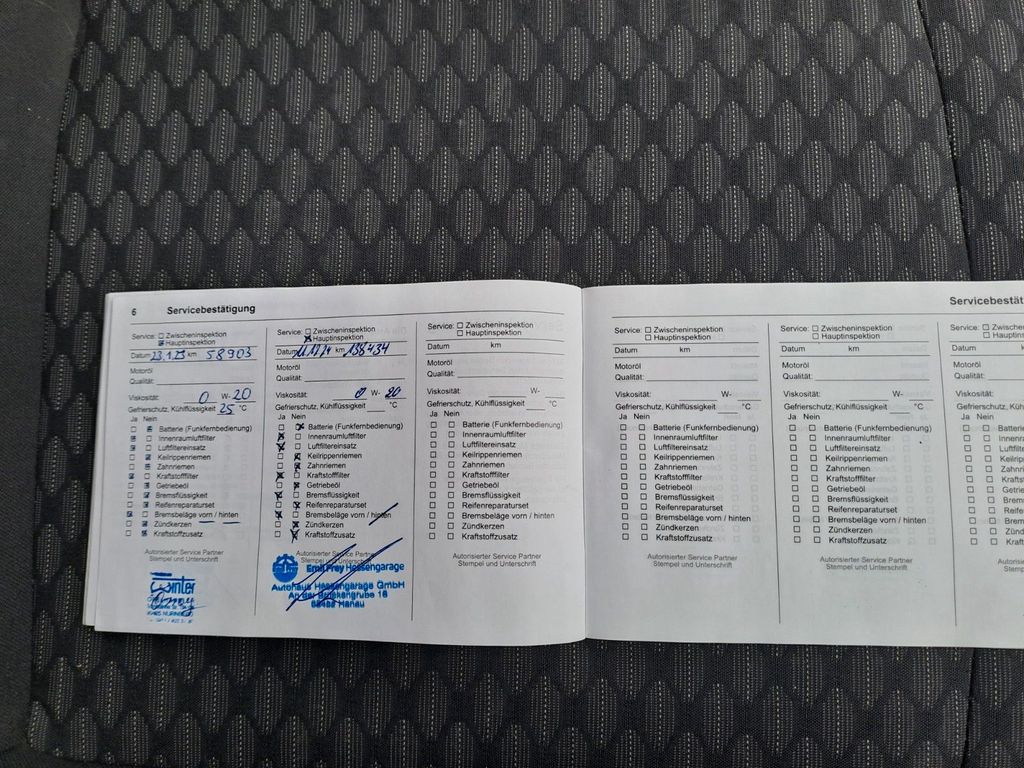 6 Servicebestätigung
Service: Zwischeninspektion
Hauptinspektion
Datum 23.1.23 km 58903
Motoröl
Qualität:
Viskosität: 0 W- 20
Gefrierschutz, Kühlflüssigkeit 25 °C
Ja Nein
Batterie (Funkfernbedienung)
Innenraumluftfilter
Luftfiltereinsatz
Keilrippenriemen
Zahnriemen
Kraftstofffilter
Getriebeöl
Bremsflüssigkeit
Reifenreparaturset
Bremsbeläge vorn / hinten
Zündkerzen
Kraftstoffzusatz
Autorisierter Service Partner
Stempel und Unterschrift
Service: Zwischeninspektion
Hauptinspektion
Datum km 136434
Motoröl
Qualität:
Viskosität: 0 W- 20
Gefrierschutz, Kühlflüssigkeit °C
Ja Nein
Batterie (Funkfernbedienung)
Innenraumluftfilter
Luftfiltereinsatz
Keilrippenriemen
Zahnriemen
Kraftstofffilter
Getriebeöl
Bremsflüssigkeit
Reifenreparaturset
Bremsbeläge vorn / hinten
Zündkerzen
Kraftstoffzusatz
Autorisierter Service Partner
Stempel und Unterschrift
Emil Frey Hessengarage
Autohaus Hessengarage GmbH
An der Brückengrube 16
Hanau
Service: Zwischeninspektion
Hauptinspektion
Datum km
Motoröl
Qualität:
Viskosität: W-
Gefrierschutz, Kühlflüssigkeit °C
Ja Nein
Batterie (Funkfernbedienung)
Innenraumluftfilter
Luftfiltereinsatz
Keilrippenriemen
Zahnriemen
Kraftstofffilter
Getriebeöl
Bremsflüssigkeit
Reifenreparaturset
Bremsbeläge vorn / hinten
Zündkerzen
Kraftstoffzusatz
Autorisierter Service Partner
Stempel und Unterschrift
Servicebestät
Service: Zwischeninspektion
Hauptinspektion
Datum km
Motoröl
Qualität:
Viskosität: W-
Gefrierschutz, Kühlflüssigkeit °C
Ja Nein
Batterie (Funkfernbedienung)
Innenraumluftfilter
Luftfiltereinsatz
Keilrippenriemen
Zahnriemen
Kraftstofffilter
Getriebeöl
Bremsflüssigkeit
Reifenreparaturset
Bremsbeläge vorn / hinten
Zündkerzen
Kraftstoffzusatz
Autorisierter Service Partner
Stempel und Unterschrift
Service: Zwischeninspektion
Hauptinspektion
Datum km
Motoröl
Qualität:
Viskosität: W-
Gefrierschutz, Kühlflüssigkeit °C
Ja Nein
Batterie (Funkfernbedienung)
Innenraumluftfilter
Luftfiltereinsatz
Keilrippenriemen
Zahnriemen
Kraftstofffilter
Getriebeöl
Bremsflüssigkeit
Reifenreparaturset
Bremsbeläge vorn / hinten
Zündkerzen
Kraftstoffzusatz
Autorisierter Service Partner
Stempel und Unterschrift
Service:
Datum
Motoröl
Qualität:
Viskosität:
Gefrierschutz, K
Ja Nein